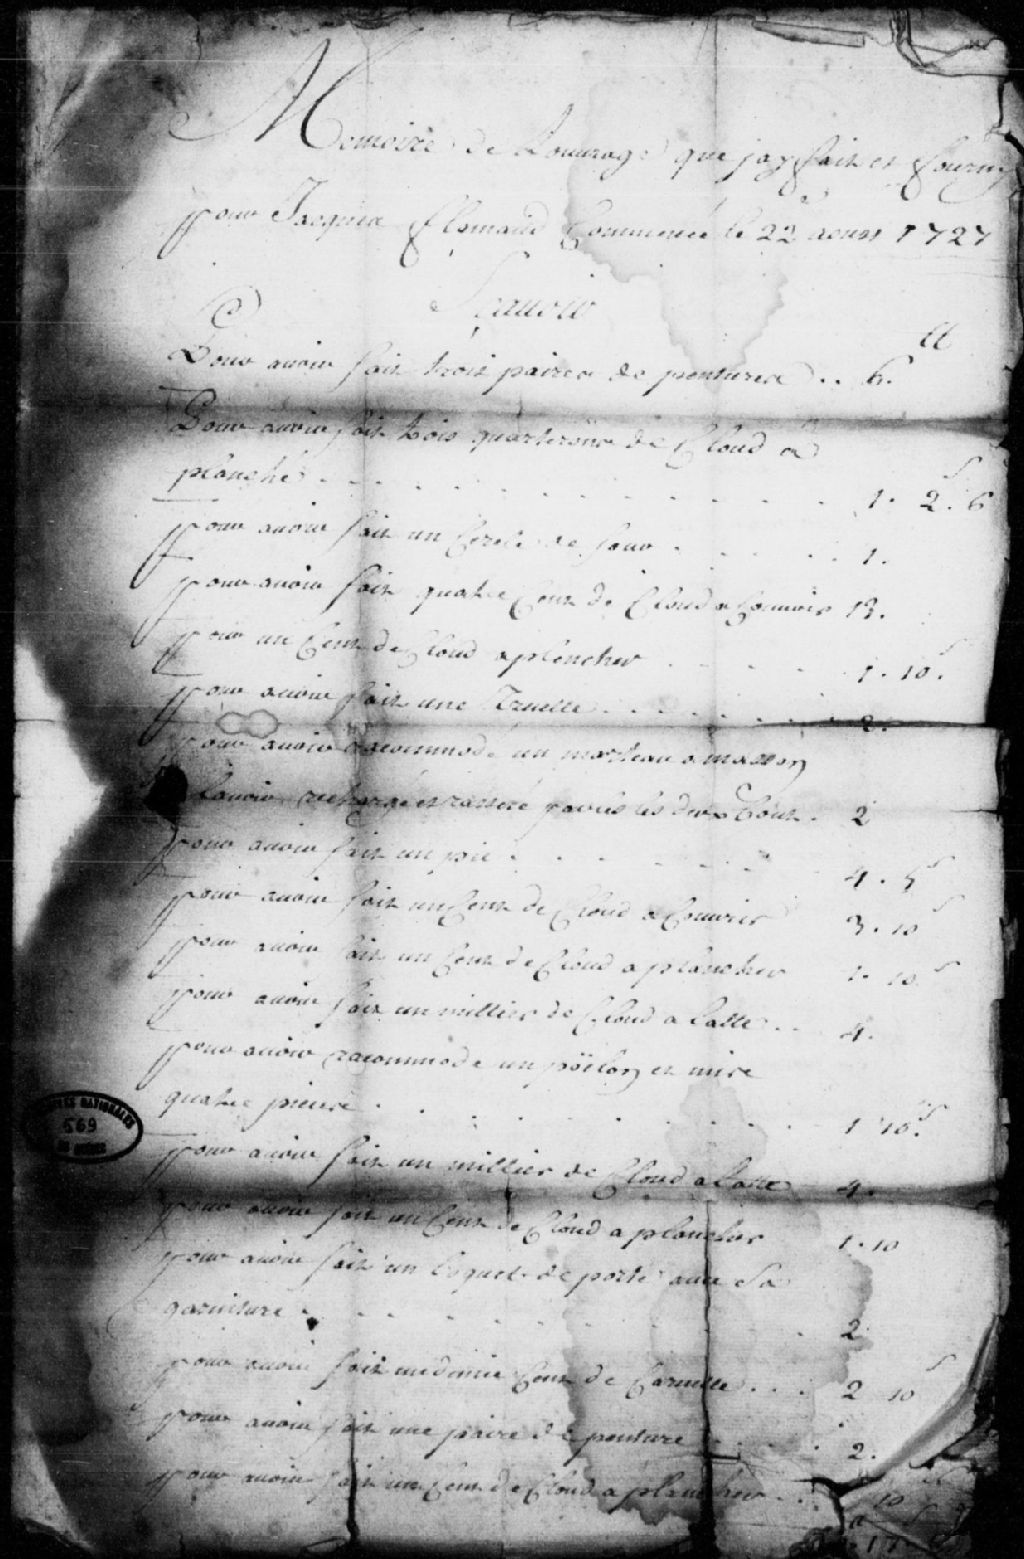 Memoire de Louurage que jay fait et fourny
pour Jacques flamand Commencé le 22e aoust 1727
Scauoir
Pour auoir fait trois paires de pentures .. 6.tt
Pour auoir fait trois quarterons de Cloud a
planché . . . . . . . . . 1. 2s. 6
pour auoir fait un Cercle de . . . . . 1.
pour auoir fait quatre Cent de Cloud a Couurir 13.
pour un Cent de Cloud a plancher . . . . 1. 10s.
pour auoir fait une Truelle . . . . . . 2.
pour auoir racommodé un marteau a masson
Lauoir rechargé et raceré par les deux bouts. 2
pour auoir fait un pic . . . . . . 4. 5s
pour auoir fait un Cent de Cloud a Couurir 3. 10s
pour auoir fait un Cent de Cloud a plancher 1. 10s
pour auoir fait un millier de Cloud a latte . . 4.
pour auoir racommodé un poilon et mise
quatre piece . . . . . . . . 1 10s.
pour auoir fait un millier de Cloud a latte 4.
pour auoir fait un Cent de Cloud a plancher 1. 10
pour auoir fait un loquet de porte auec sa
garniture . . . . . . . . 2
pour auoir fait un demie Cent de . . . 2 10s
pour auoir fait une paire de penture . . . 2.
pour auoir fait un Cent de Cloud a plancher . . . 10
ARCHIVES NATIONALES
569